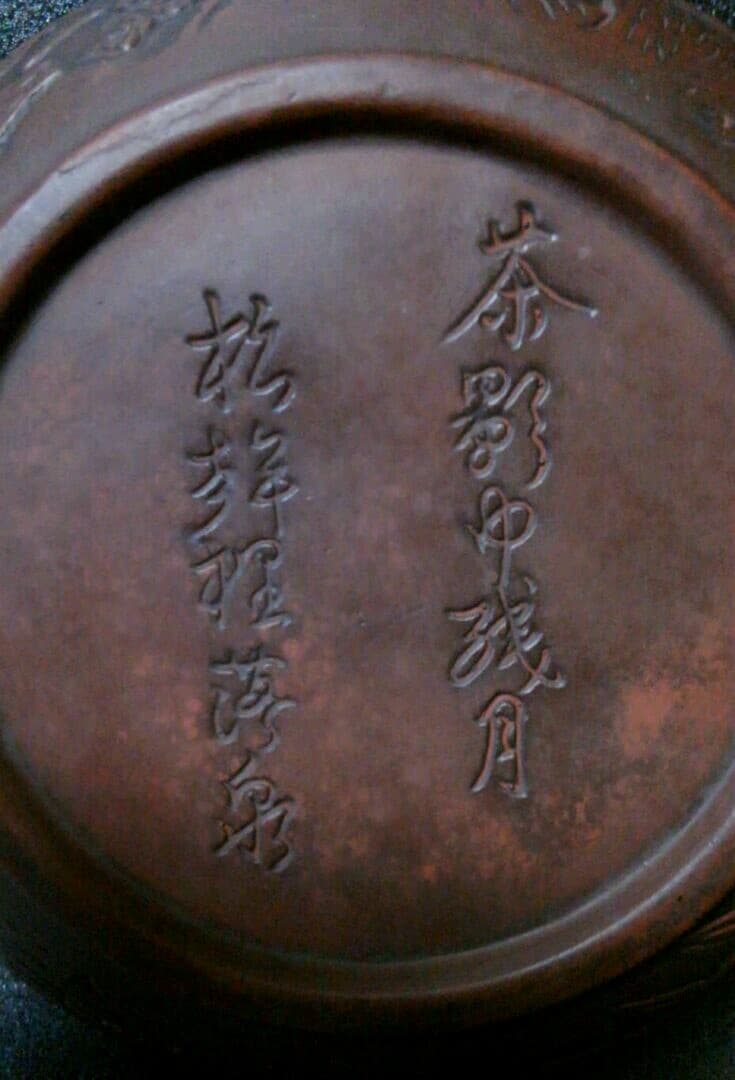 茶影中残月
松声裡落泉